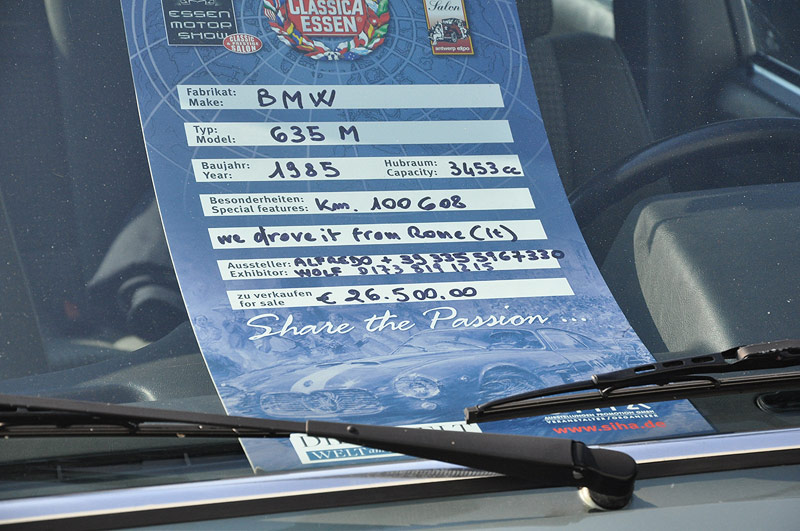 ESSEN
MOTOR
SHOW
CLASSIC & PRESTIGE
SALON
CLASSICA
ESSEN
Salon
antwerp expo
Fabrikat:
Make: BMW
Typ:
Model: 635 M
Baujahr:
Year: 1985 Hubraum:
Capacity: 3453 cc
Besonderheiten:
Special features: Km. 100608
we drove it from Rome (It)
Aussteller: ALFREDO + 39 335 5967330
Exhibitor: WOLF 0173 819 1215
zu verkaufen
for sale € 26.500,00
Share the Passion ...
AUSSTELLUNGEN PROMOTION GMBH
VERANSTALTER/ORGANISER
www.siha.de
WELT